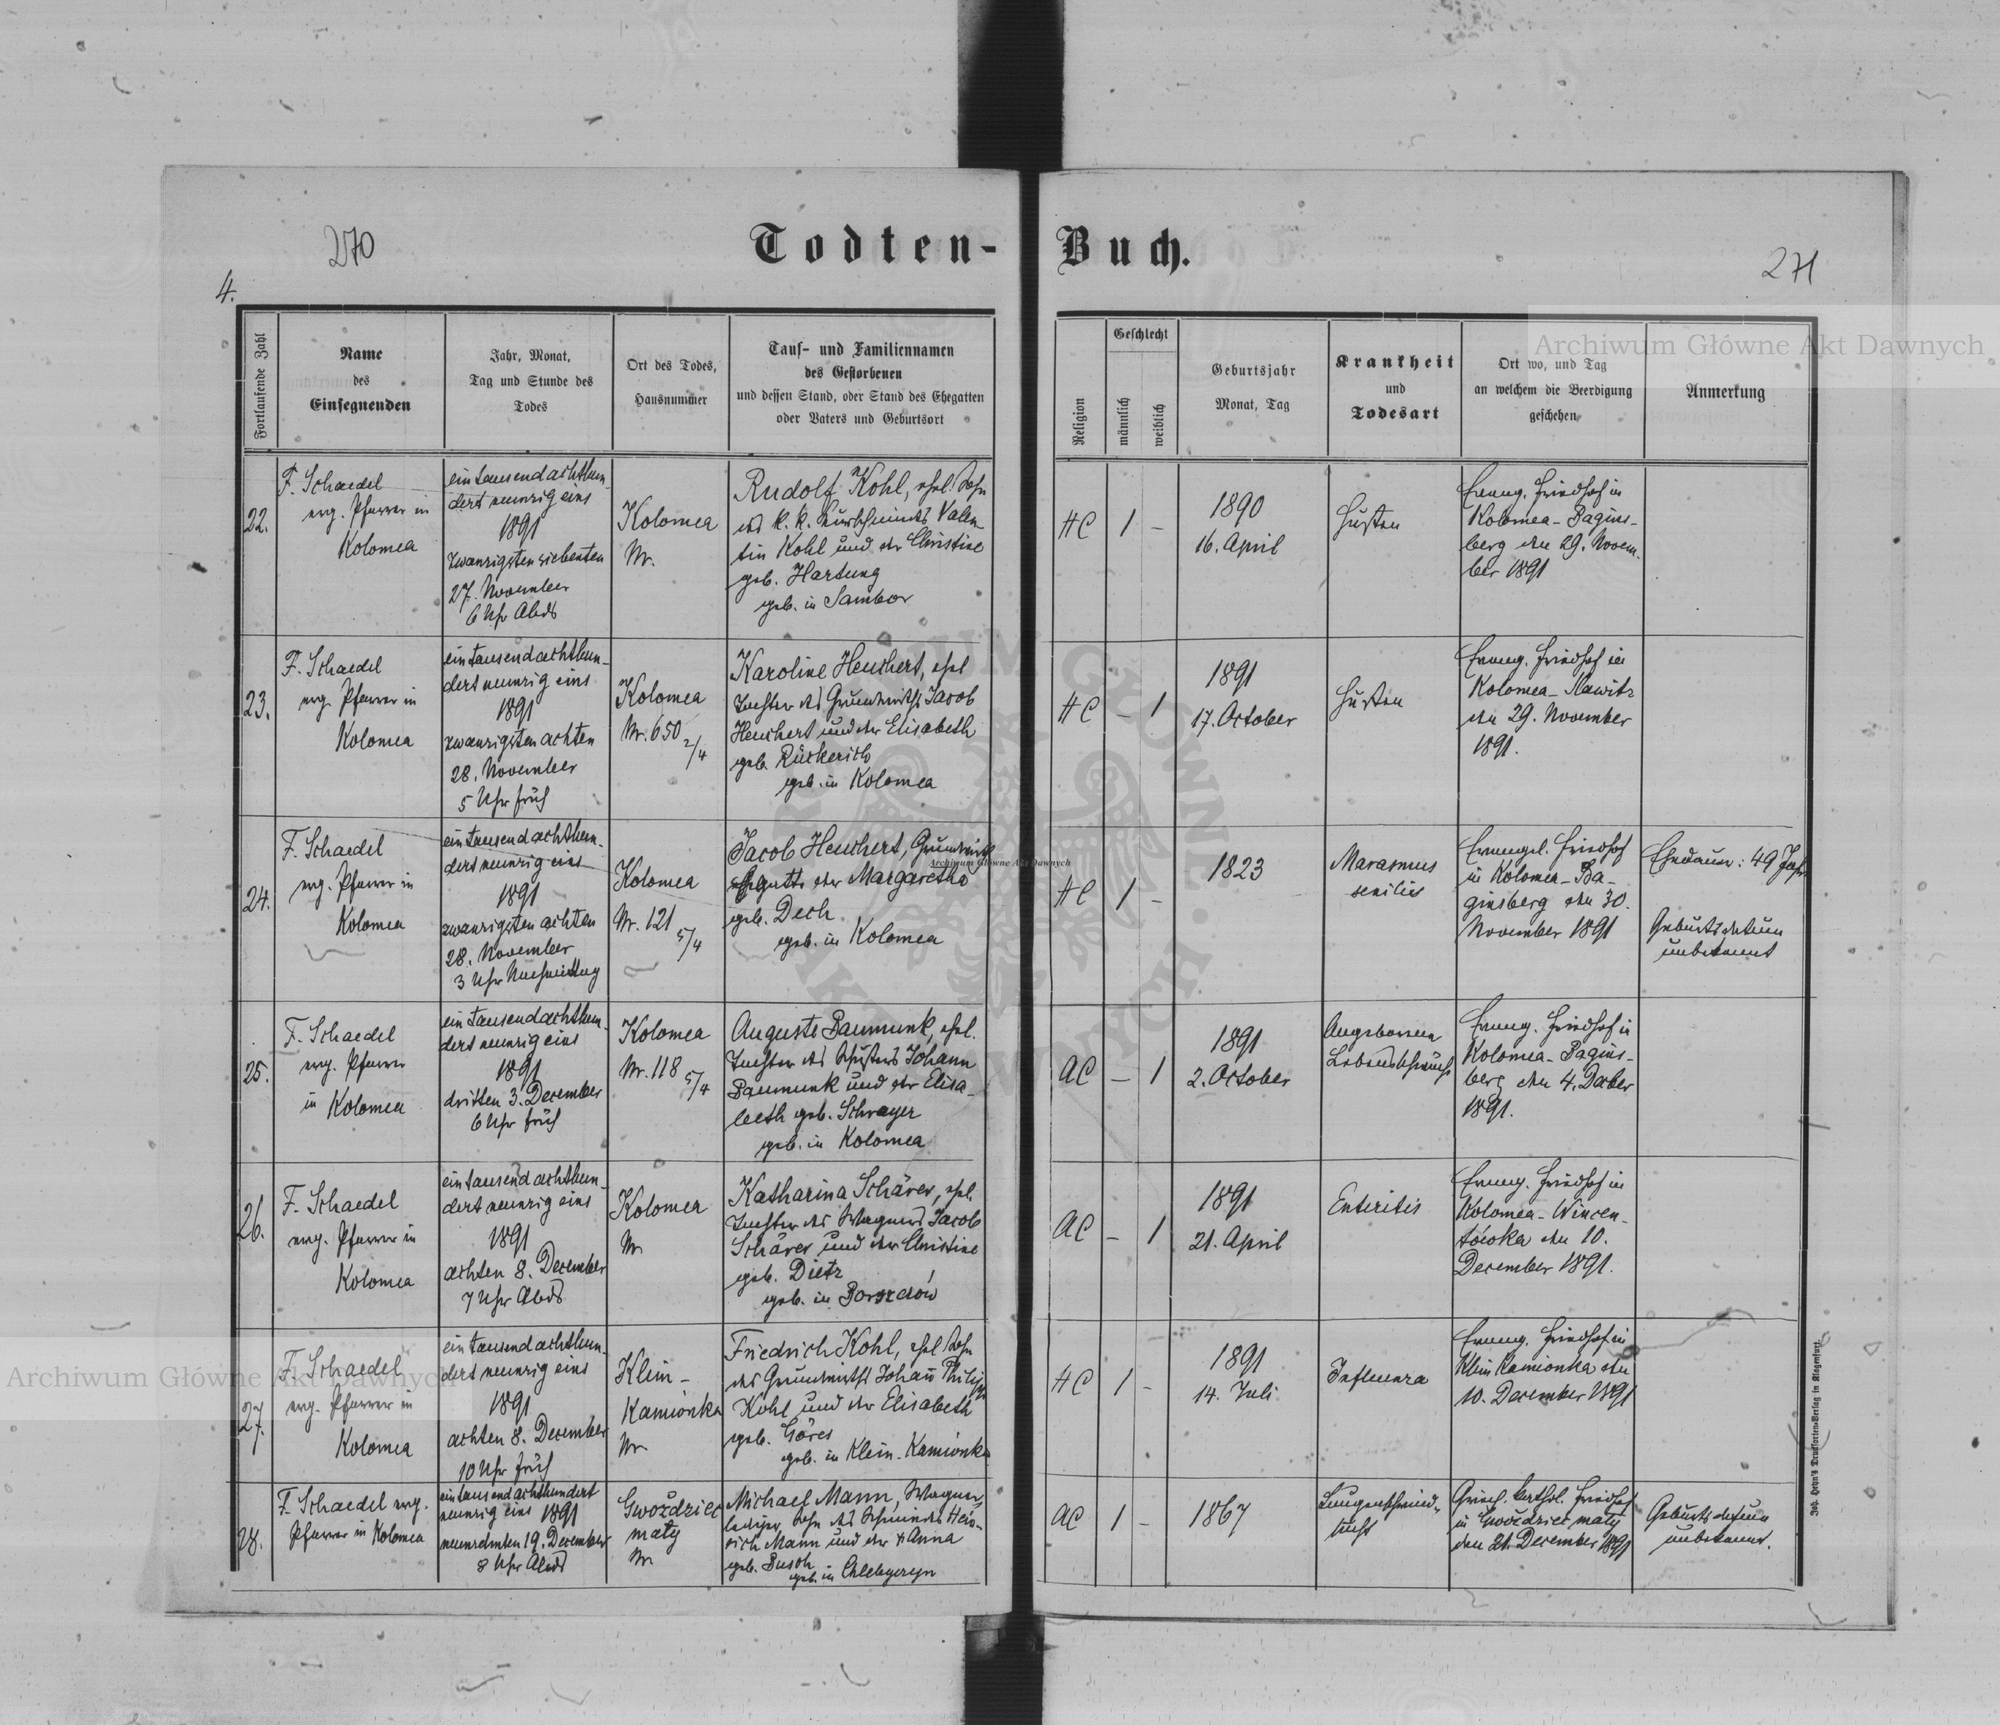 270
Todten-Buch.
271
4.
Fortlaufende Zahl
Name
des
Einsegnenden
Jahr, Monat,
Tag und Stunde des
Todes
Ort des Todes,
Hausnummer
Tauf- und Familiennamen
des Gestorbenen
und dessen Stand, oder Stand des Ehegatten
oder Vaters und Geburtsort
Religion
Geschlecht
männlich
weiblich
Geburtsjahr
Monat, Tag
Krankheit
und
Todesart
Ort wo, und Tag
an welchem die Beerdigung
geschehen
Anmerkung
22.
F. Schaedel
evg. Pfarrer in
Kolomea
ein tausend achthun-
dert neunzig eins
1891
zwanzigsten siebenten
27. November
6 Uhr Abds
Kolomea
Nr.
Rudolf Kohl, ehel. Sohn
des k. k. Kurschmieds Valen
tin Kohl und der Christine
geb. Hartung
geb. in Sambor
HC
1
-
1890
16. April
Husten
Evang. Friedhof in
Kolomea - Bagins-
berg den 29. Novem-
ber 1891
23.
F. Schaedel
evg. Pfarrer in
Kolomea
ein tausend achthun-
dert neunzig eins
1891
zwanzigsten achten
28. November
5 Uhr früh
Kolomea
Nr. 650 2/4
Karoline Heuchert, ehel
Tochter des Grundwirths Jacob
Heuchert und der Elisabeth
geb. Rückerich
geb. in Kolomea
HC
-
1
1891
17. October
Husten
Evang. Friedhof in
Kolomea - Slawitz
den 29. November
1891.
24.
F. Schaedel
evg. Pfarrer in
Kolomea
ein tausend achthun-
dert neunzig eins
1891
zwanzigsten achten
28. November
3 Uhr Nachmittag
Kolomea
Nr. 121 5/4
Jacob Heuchert, Grundwirth
Ehegatte der Margaretha
geb. Dech
geb. in Kolomea
HC
1
-
1823
Marasmus
senilis
Evangel. Friedhof
in Kolomea - Ba-
ginsberg den 30.
November 1891
Ehedauer: 49 Jahr
Geburtsdatum
unbekannt
25.
F. Schaedel
evg. Pfarrer
in Kolomea
ein tausend achthun-
dert neunzig eins
1891
dritten 3. December
6 Uhr früh
Kolomea
Nr. 118 5/4
Auguste Baumunk, ehel.
Tochter des Schusters Johann
Baumunk und der Elisa-
beth geb. Schrayer
geb. in Kolomea
AC
-
1
1891
2. October
Angeborene
Lebensschwäche
Evang. Friedhof in
Kolomea - Bagins-
berg den 4. Decber
1891.
26.
F. Schaedel
evg. Pfarrer in
Kolomea
ein tausend achthun-
dert neunzig eins
1891
achten 8. December
7 Uhr Abds
Kolomea
Nr
Katharina Schärer, ehel.
Tochter des Wagners Jacob
Schärer und der Christine
geb. Dietz
geb. in Borszczów
AC
-
1
1891
21. April
Enteritis
Evang. Friedhof in
Kolomea - Wincen-
tówka den 10.
December 1891.
27.
F. Schaedel
evg. Pfarrer in
Kolomea
ein tausend achthun-
dert neunzig eins
1891
achten 8. December
10 Uhr früh
Klein -
Kamionka
Nr
Friedrich Kohl, ehel Sohn
des Grundwirths Johann Philipp
Kohl und der Elisabeth
geb. Göres
geb. in Klein-Kamionka
HC
1
-
1891
14. Juli
Influenza
Evang. Friedhof in
Klein Kamionka den
10. December 1891
28.
F. Schaedel evg.
Pfarrer in Kolomea
ein tausend achthundert
neunzig eins 1891
neunzehnten 19. December
8 Uhr Abds
Gwoździec
mały
Nr
Michael Mann, Wagner,
lediger Sohn des Schmieds Hein-
rich Mann und der + Anna
geb. Busch
geb. in Chlebyczyn
AC
1
-
1867
Lungenschwind-
sucht
Griech. kathol. Friedhof
in Gwoździec mały
den 21. December 1891
Geburtsdatum
unbekannt.
Joh. Heyn's Drucksorten-Verlag in Klagenfurt.
Archiwum Główne Akt Dawnych
Archiwum Główne Akt Dawnych
Archiwum Główne Akt Dawnych